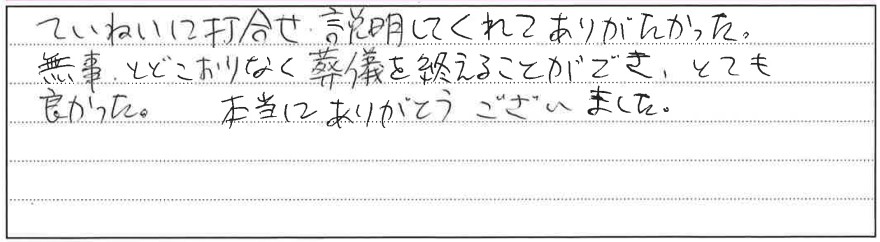 ていねいに打合せ・説明してくれてありがたかった。
無事、とどこおりなく葬儀を終えることができ、とても
良かった。　本当にありがとうございました。